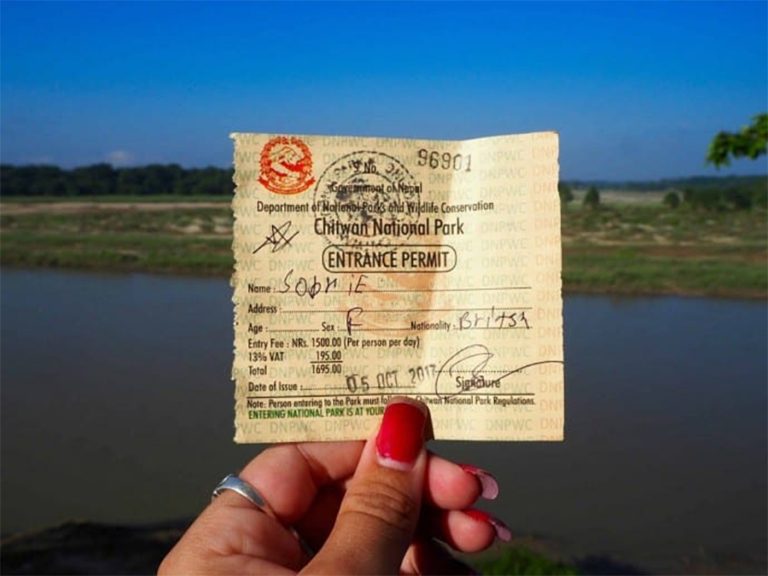 S.No. 96901
Government of Nepal
Department of National Parks and Wildlife Conservation
Chitwan National Park
ENTRANCE PERMIT
Name : Sophie
Address :
Age : Sex : F Nationality : British
Entry Fee : NRs. 1500.00 (Per person per day)
13% VAT 195.00
Total 1695.00
Date of Issue : 05 OCT 2017 Signature
Note: Person entering to the Park must Chitwan National Park Regulations.
ENTERING NATIONAL PARK IS AT YOUR